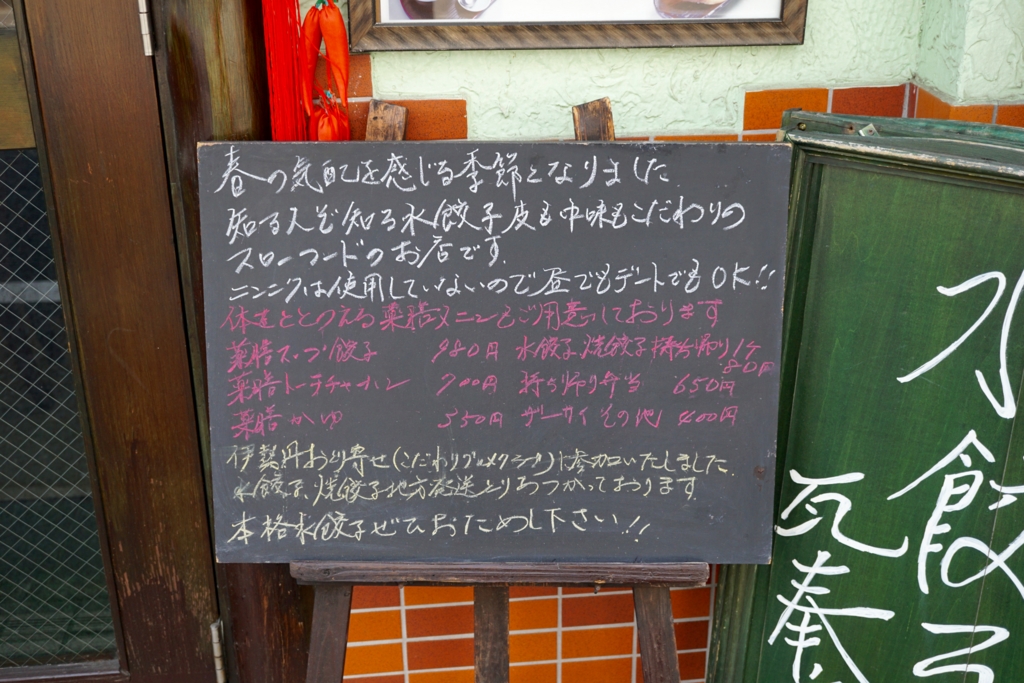 春の気配を感じる季節となりました
知る人ぞ知る水餃子皮も中味もこだわりの
スローフードのお店です。
ニンニクは使用していないので昼でもデートでもOK!!
体をととのえる薬膳メニューもご用意しております
薬膳スープ餃子 980円 水餃子、焼餃子持ち帰り1ケ80円
薬膳トーチャーハン 700円 持ち帰り弁当 650円
薬膳かゆ 550円 ザーサイその他 400円
伊勢丹おとり寄せ(こだわりグルメクラシック)に参加いたしました。
水餃子、焼餃子地方発送とりあつかっております。
本格水餃子ぜひおためし下さい!!
水餃子
瓦奏